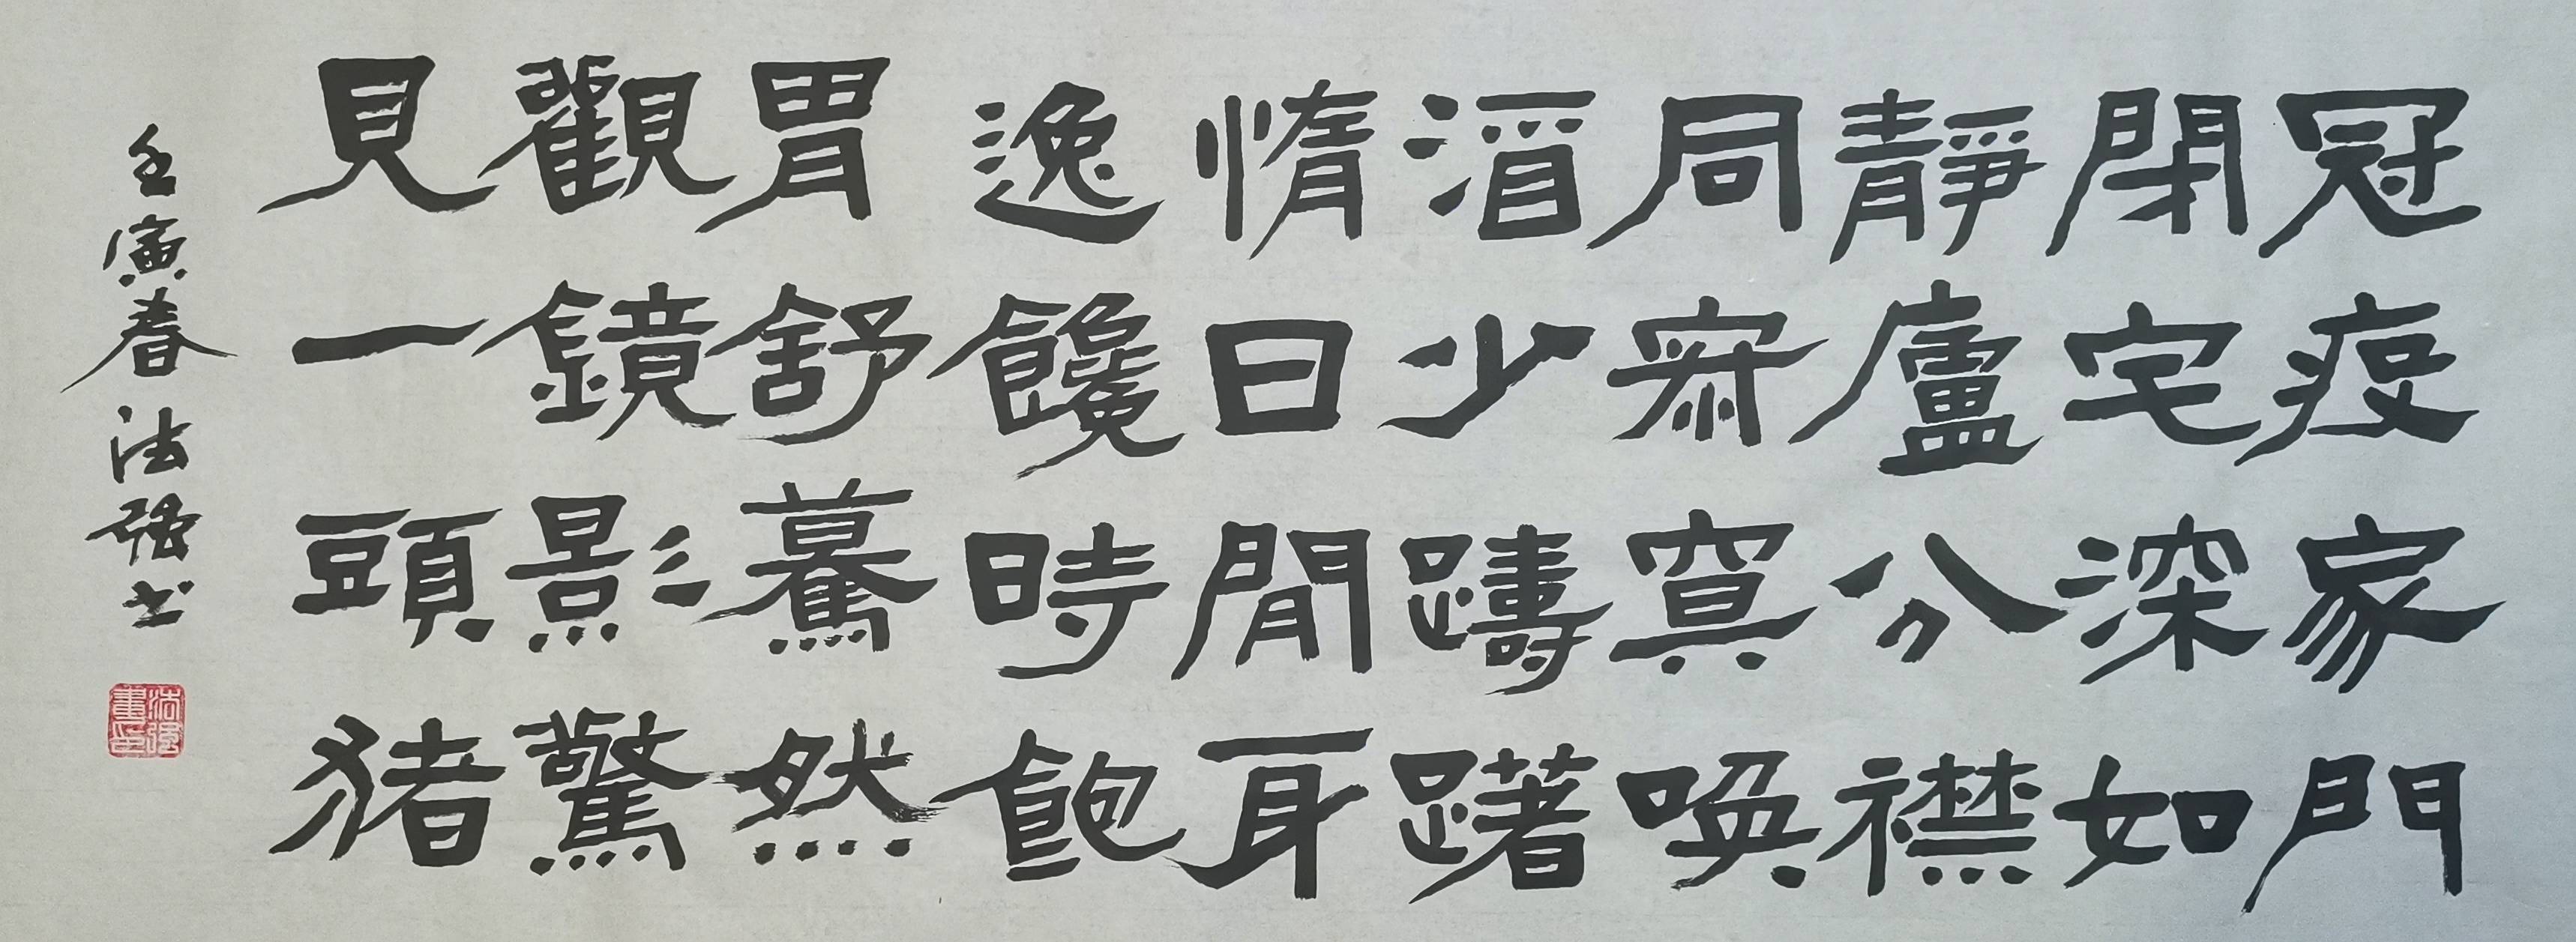 冠疫家門
閉宅深如
靜廬分襟
同寂寞喚
酒少躊躇
惰日閒耳
逸饞時飽
胃舒驀然
觀鏡影驚
見一頭猪
壬寅春法强书
法强書印